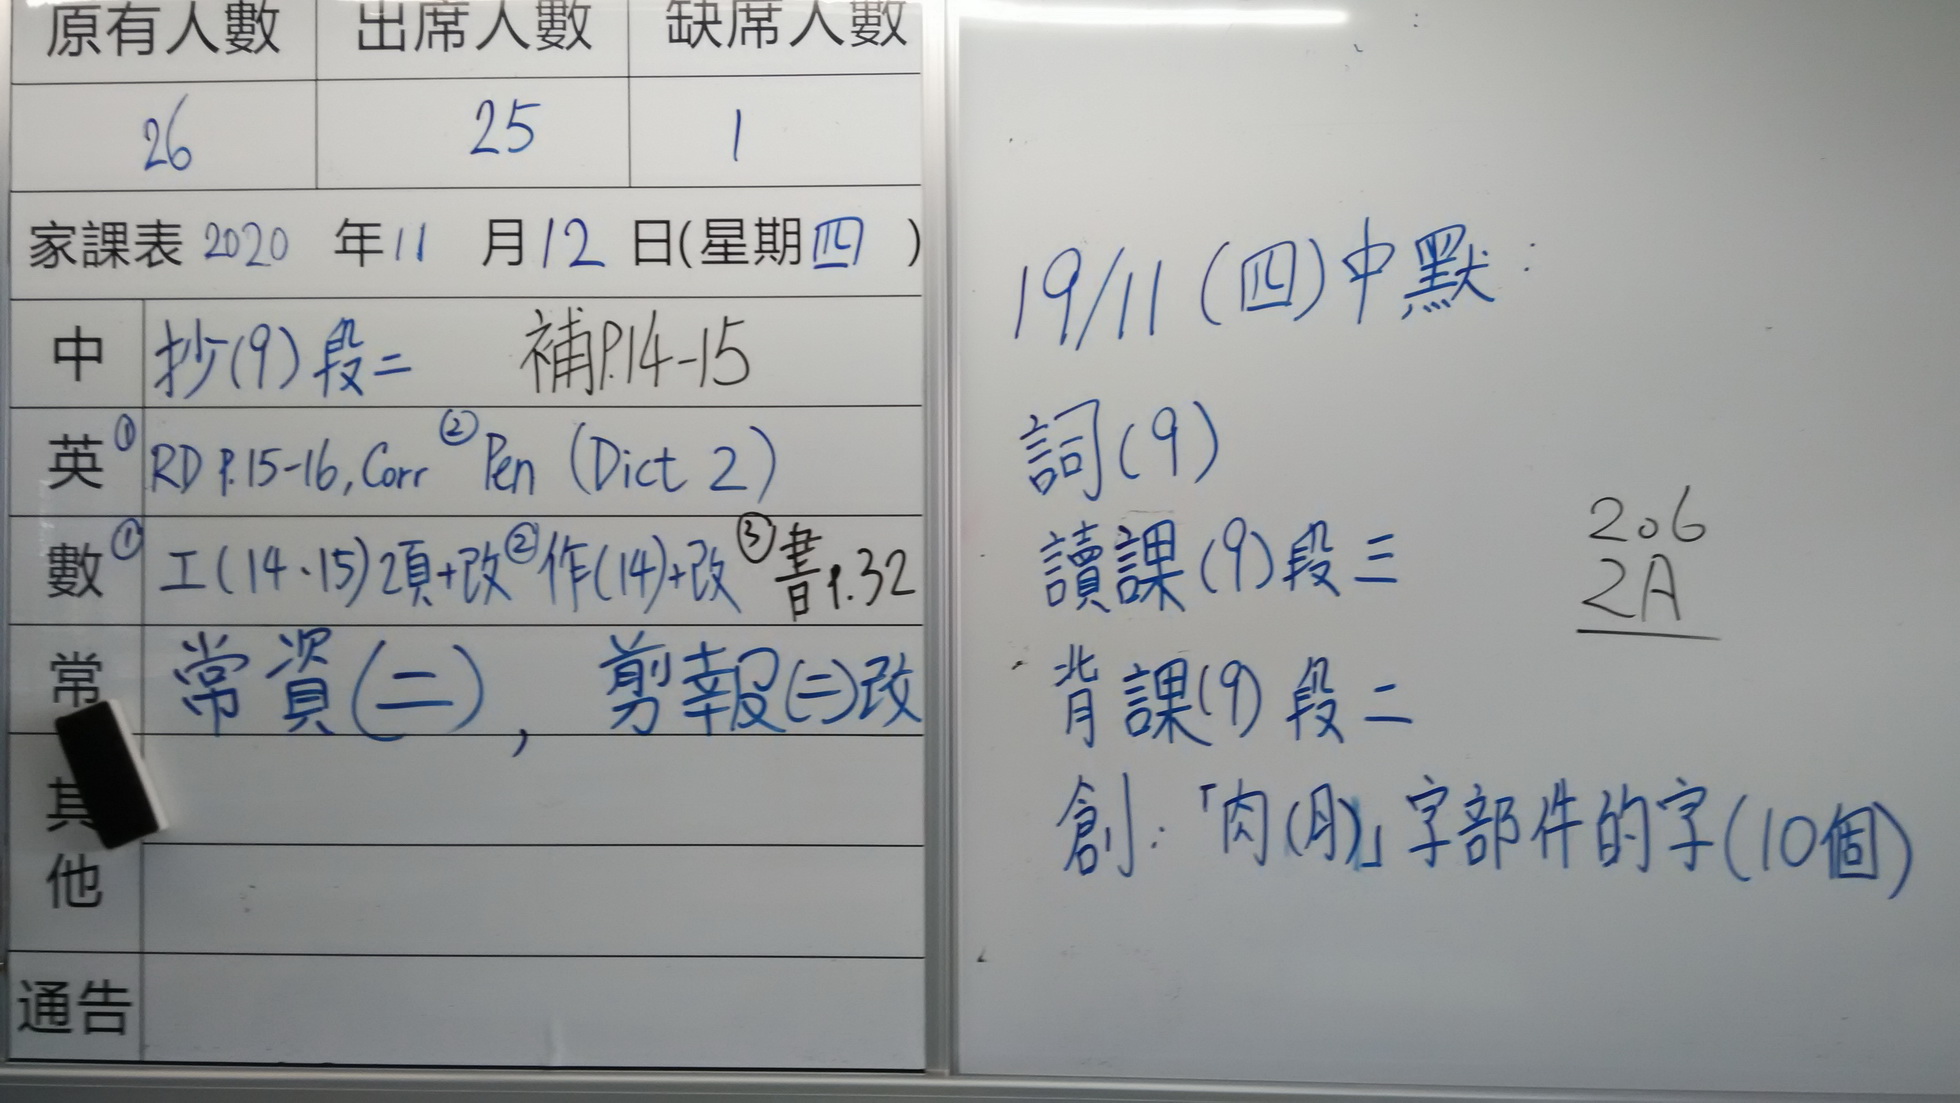 原有人數 出席人數 缺席人數
26 25 1
家課表 2020 年 11 月 12 日(星期四)
中 抄(9)段二 補P.14-15
英 ①RD P.15-16, Corr ②Pen (Dict 2)
數 ①工(14、15)2頁+改 ②作(14)+改 ③書P.32
常 常資(二), 剪報(二)改
其他
通告
19/11(四)中默:
詞(9)
讀課(9)段三
背課(9)段二
創:「肉(月)」字部件的字(10個)
206
2A